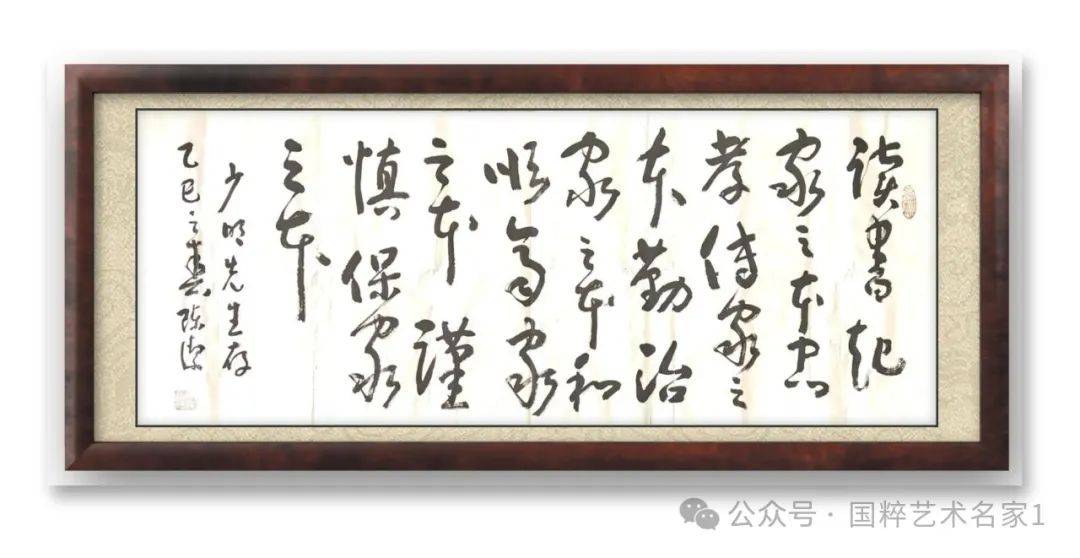 读書起
家之本忠
孝传家之
本勤治
家之本和
顺齐家
之本谨
慎保家
之本
少明先生存
乙巳之春陈
公众号 · 国粹艺术名家1